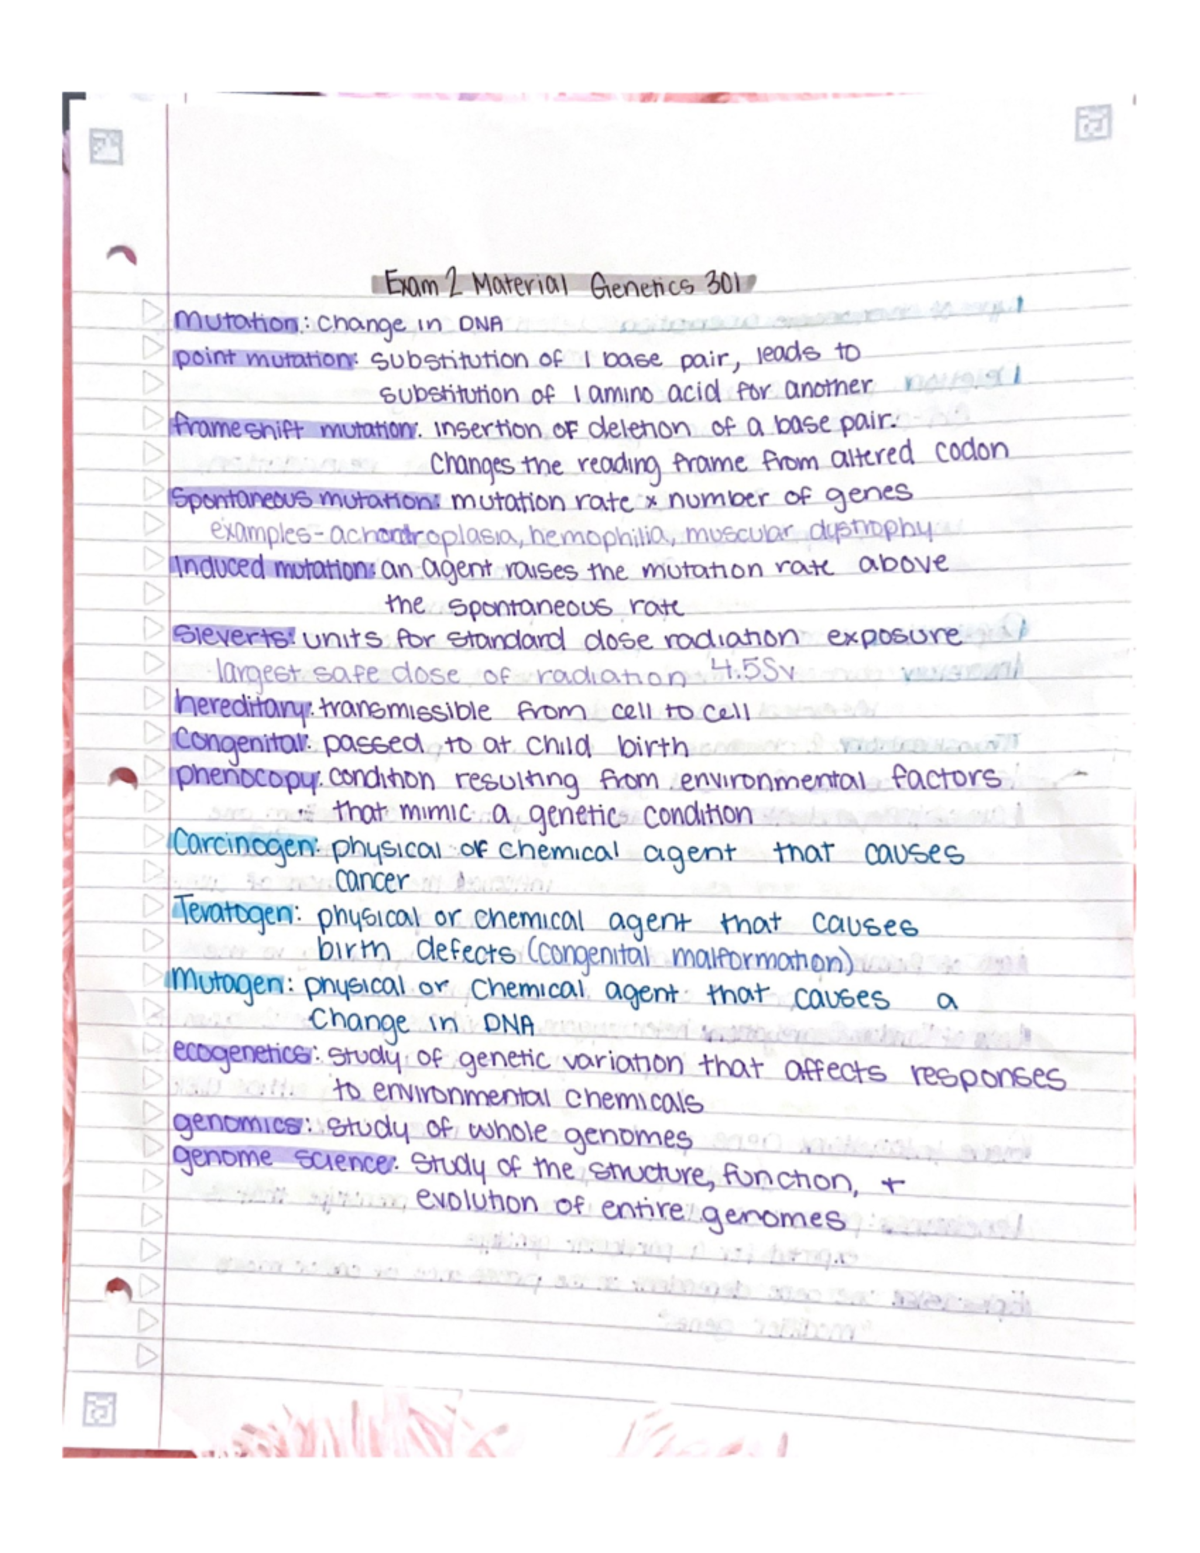 Exam 2 Material Genetics 301
Mutation: Change in DNA
point mutation: substitution of 1 base pair, leads to
substitution of 1 amino acid for another
frameshift mutation: insertion or deletion of a base pair.
Changes the reading frame from altered codon
Spontaneous mutation: mutation rate x number of genes
examples - achondroplasia, hemophilia, muscular dystrophy
Induced mutation: an agent raises the mutation rate above
the spontaneous rate
Sieverts: units for standard dose radiation exposure
largest safe dose of radiation 4.5Sv
hereditary: transmissible from cell to cell
Congenital: passed to at child birth
phenocopy: condition resulting from environmental factors
that mimic a genetic condition
Carcinogen: physical or chemical agent that causes
cancer
Teratogen: physical or chemical agent that causes
birth defects (congenital malformation)
Mutagen: physical or chemical agent that causes a
Change in DNA
ecogenetics: study of genetic variation that affects responses
to environmental chemicals
genomics: study of whole genomes
genome science: Study of the structure, function, +
evolution of entire genomes